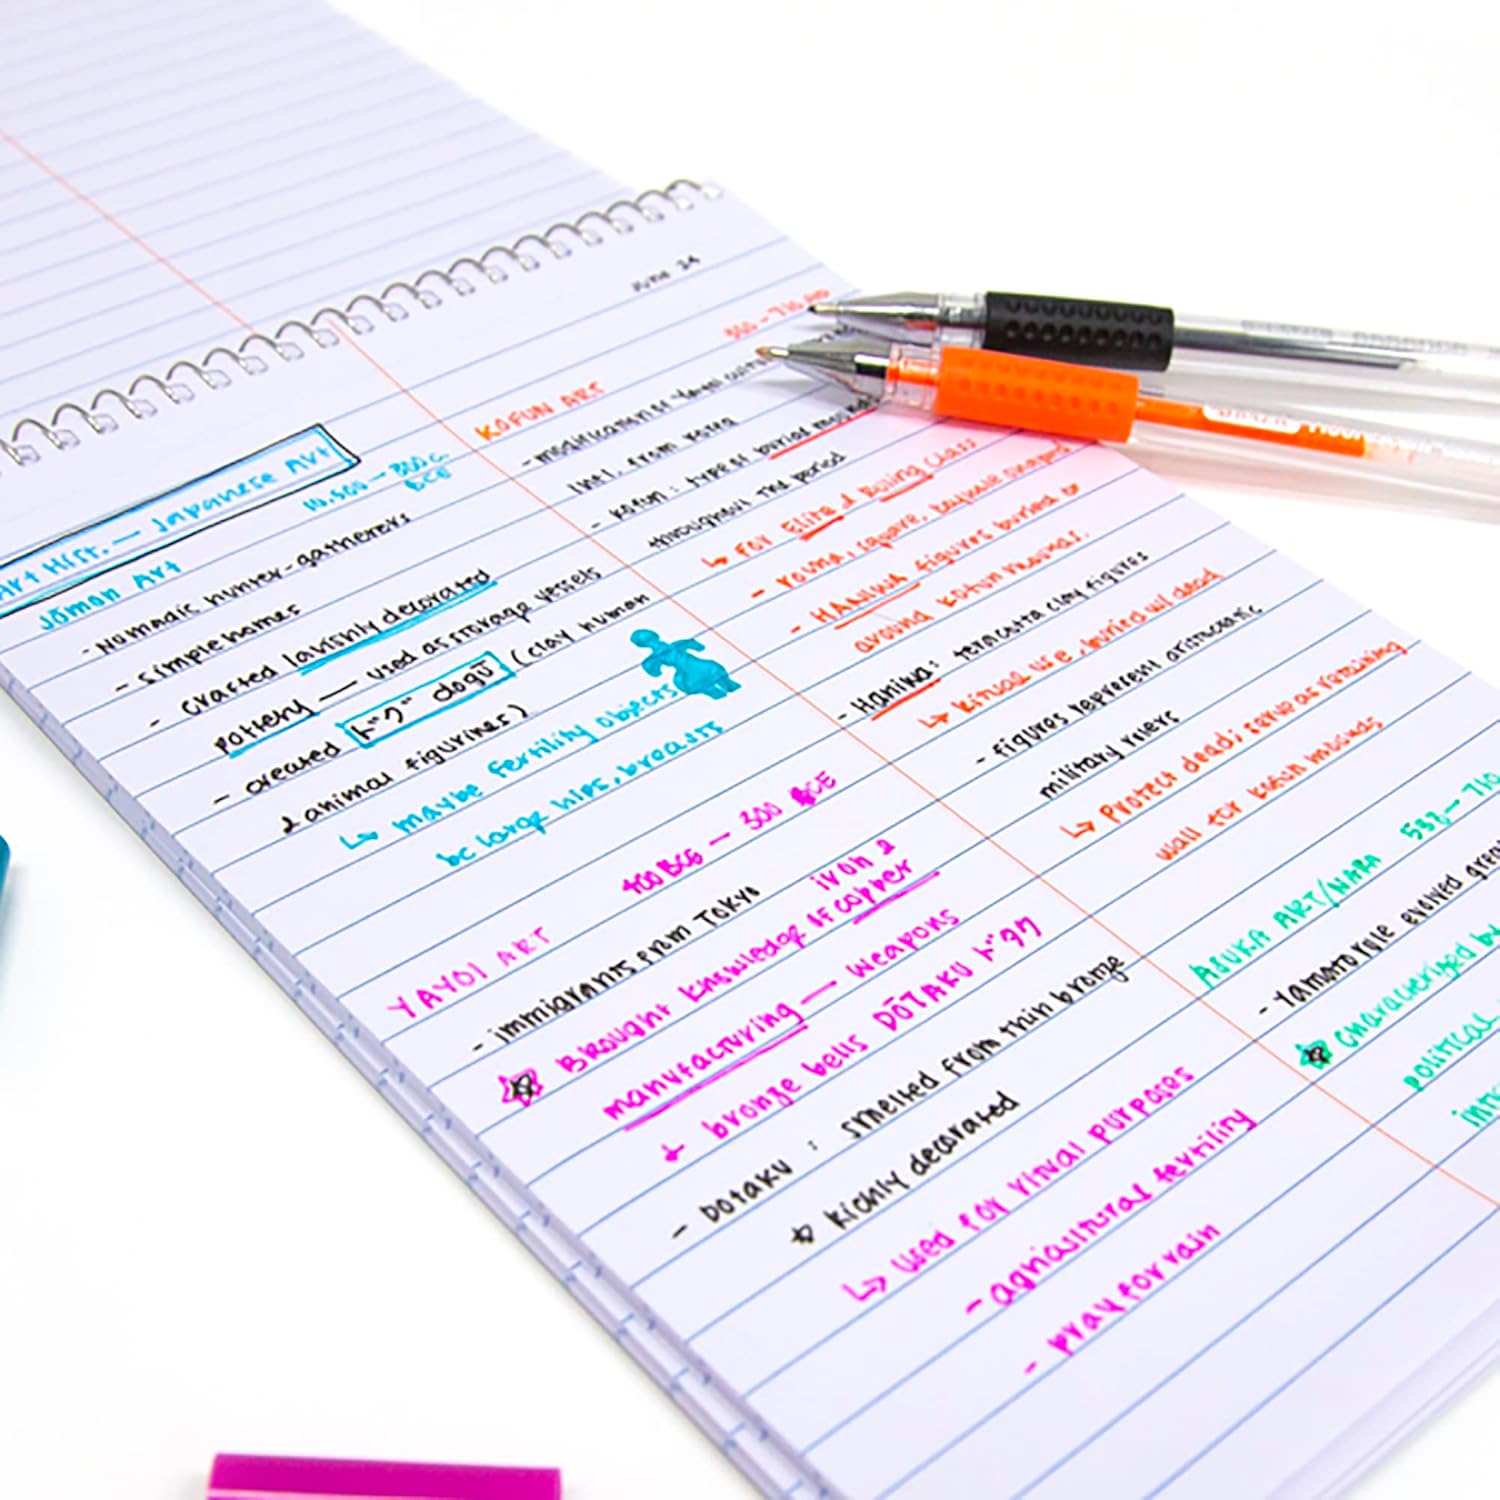 June 24
Art Hist. — Japanese Art
Jōmon Art
10,500 — 300 BCE
- Nomadic hunter-gatherers
- Simple homes
- crafted lavishly decorated
pottery — used as storage vessels
- created ドグ dogū (clay human
& animal figurines)
↳ maybe fertility objects
bc large hips, breasts
YAYOI ART
400 BCE — 300 BCE
- immigrants from Tokyo
iron &
Brought knowledge of copper
manufacturing — weapons
+ bronze bells DŌTAKU ドタク
- DOTAKU : smelted from thin bronze
Richly decorated
↳ used for ritual purposes
- agricultural fertility
- pray for rain
KOFUN ART
300 - 710 AD
- modification of Yayoi
from
- Kofun : type of burial
throughout the period
↳ For Elite & Ruling class
- round, square, keyhole shaped
- HANIWA figures buried or
around kofun mounds.
- Haniwa: terracotta clay figures
↳ Ritual use, buried w/ dead
- figures represent aristocratic
military rulers
↳ Protect dead; serve as retaining
wall for kofun mounds
ASUKA ART/NARA 538 — 710
- Yamato rule evolved
Characterized by
political